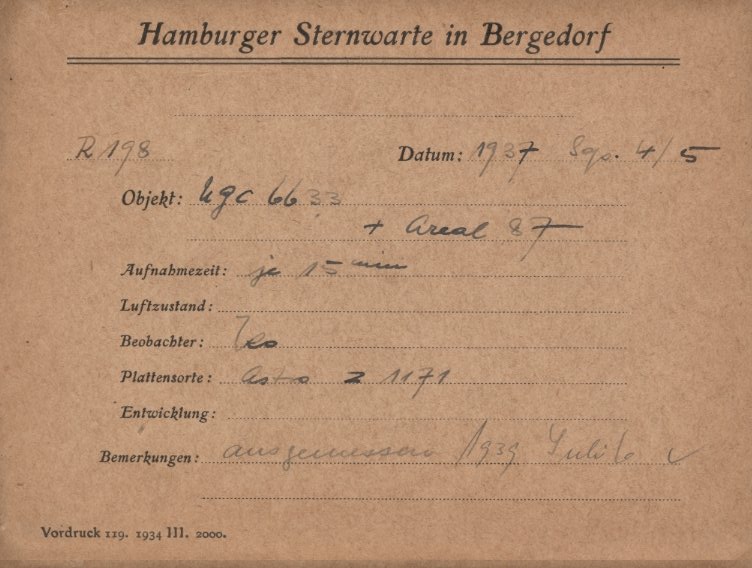 Hamburger Sternwarte in Bergedorf
R 198 Datum: 1937 Sep. 4/5
Objekt: Ngc 6633
+ Areal 87
Aufnahmezeit: je 15 min
Luftzustand:
Beobachter:
Plattensorte: Astro Z 1171
Entwicklung:
Bemerkungen: ausgemessen 1939 Juli 6
Vordruck 119. 1934 III. 2000.